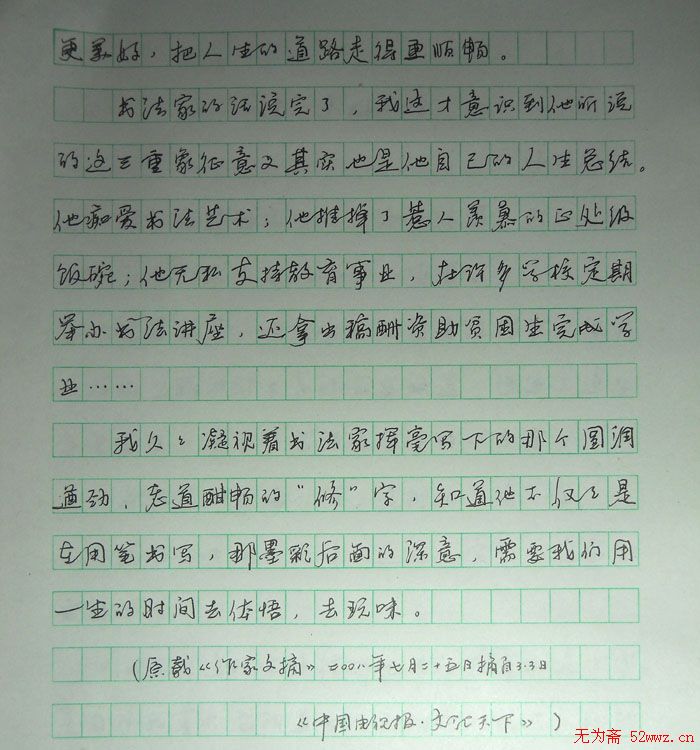 更美好，把人生的道路走得更顺畅。
书法家的话说完了，我这才意识到他所说
的这三重象征意义其实也是他自己的人生总结。
他痴爱书法艺术；他推掉了惹人羡慕的正处级
饭碗；他无私支持教育事业，在许多学校定期
举办书法讲座，还拿出稿酬资助贫困生完成学
业……
我久久凝视着书法家挥毫写下的那个圆润
遒劲、老道酣畅的“修”字，知道他不仅仅是
在用笔书写，那墨彩后面的深意，需要我们用
一生的时间去体悟，去玩味。
（原载《作家文摘》二〇〇八年七月二十五日摘自3.3日
《中国电视报·文化天下》）
无为斋 52wwz.cn